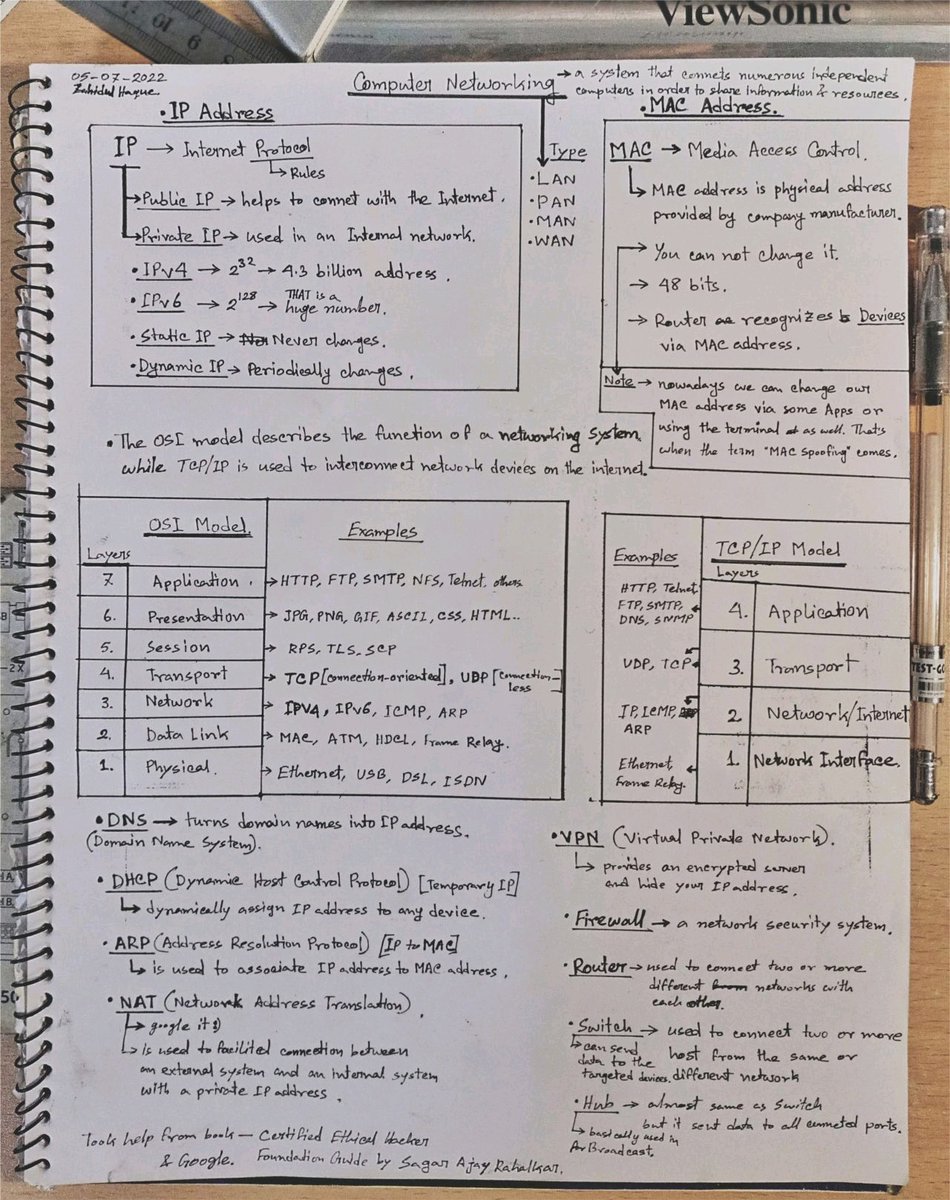 ViewSonic
05-07-2022
Zahidul Haque
Computer Networking → a system that connets numerous independent
computers in order to share information & resources.
• IP Address
IP → Internet Protocol
↳ Rules
→ Public IP → helps to connet with the Internet.
→ Private IP → used in an Internal network.
• IPv4 → 2^32 → 4.3 billion address.
• IPv6 → 2^128 → THAT is a
huge number.
• Static IP → Never changes.
• Dynamic IP → Periodically changes.
Type
• LAN
• PAN
• MAN
• WAN
• MAC Address.
MAC → Media Access Control.
↳ MAC address is physical address
provided by company manufacturer.
→ You can not change it.
→ 48 bits.
→ Router recognizes Devices
via MAC address.
Note → nowadays we can change our
MAC address via some Apps or
using the terminal as well. That's
when the term "MAC spoofing" comes.
• The OSI model describes the function of a networking system.
while TCP/IP is used to interconnect network devices on the internet.
OSI Model. Examples
Layers
7. Application. → HTTP, FTP, SMTP, NFS, Telnet, others.
6. Presentation → JPG, PNG, GIF, ASCII, CSS, HTML..
5. Session → RPS, TLS, SCP
4. Transport → TCP [connection-oriented], UDP [connection-
less
3. Network → IPV4, IPV6, ICMP, ARP
2. Data Link → MAC, ATM, HDCL, Frame Relay.
1. Physical. → Ethernet, USB, DSL, ISDN
Examples TCP/IP Model
Layers
HTTP, Telnet.
FTP, SMTP, 4. Application
DNS, SNMP
UDP, TCP 3. Transport
IP, ICMP, 2. Network/Internet
ARP
Ethernet, 1. Network Interface.
Frame Relay.
TEST-GO
• DNS → turns domain names into IP address.
(Domain Name System).
• DHCP (Dynamic Host Control Protocol) [Temporary IP]
↳ dynamically assign IP address to any device.
• ARP (Address Resolution Protocol) [IP to MAC]
↳ is used to associate IP address to MAC address.
• NAT (Network Address Translation).
→ google it :)
↳ is used to facilited connection between
an external system and an internal system
with a private IP address.
• VPN (Virtual Private Network).
↳ provides an encrypted server
and hide your IP address.
• Firewall → a network security system.
• Router → used to connect two or more
different networks with
each other.
• Switch → used to connect two or more
host from the same or
different network
↳ can send
data to the
targeted devices.
• Hub → almost same as Switch
but it sent data to all conneted ports.
↳ basically used in
Broadcast.
Took help from book — Certified Ethical Hacker
& Google. Foundation Guide by Sagar Ajay Rahalkar.